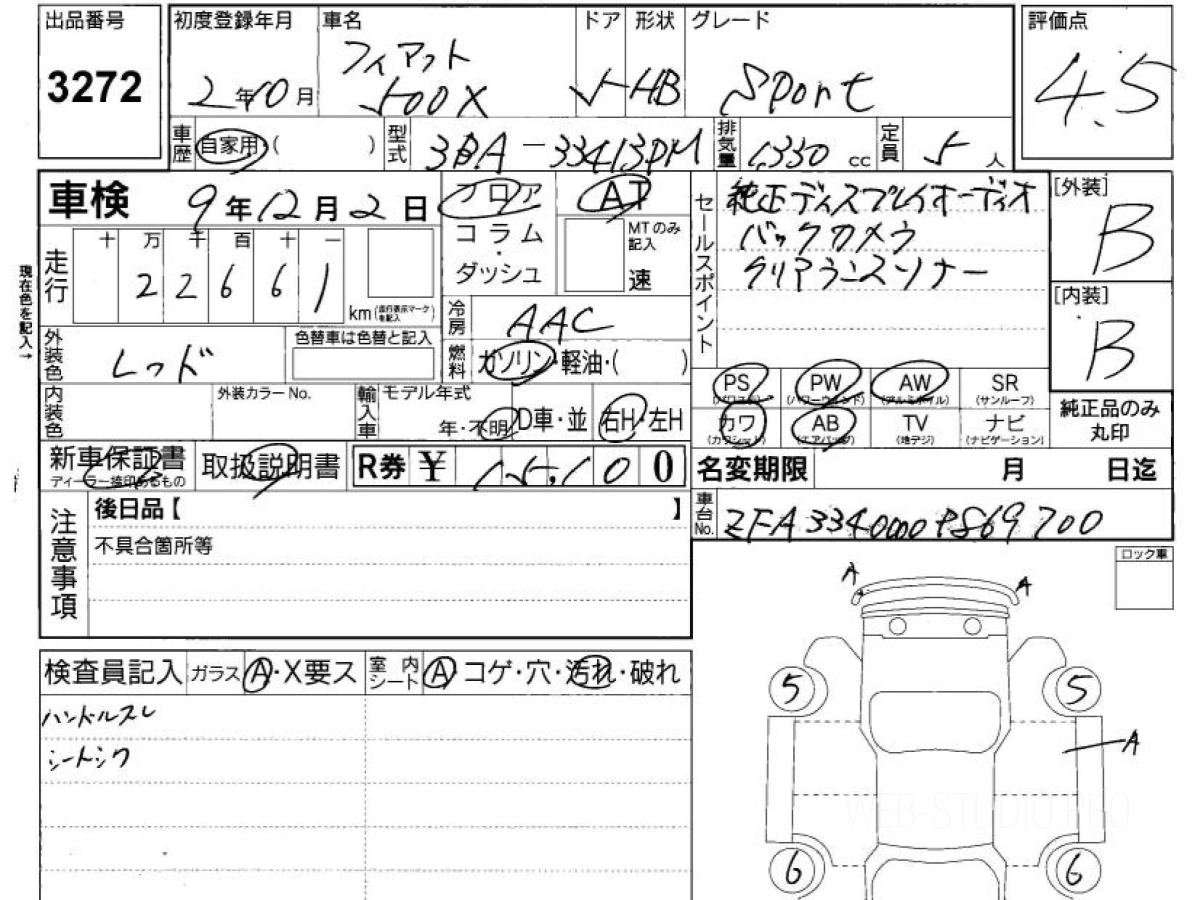 出品番号
3272
初度登録年月
2年10月
車名
フィアット
500X
ドア
5
形状
HB
グレード
Sport
評価点
4.5
車歴
自家用・( )
型式
3BA-33413PM
排気量
1,330 cc
定員
5人
車検
9年12月2日
フロア
コラム
・
ダッシュ
AT
MTのみ記入
速
走行
十 万 千 百 十 一
2 2 6 6 1
km(走行表示マークを記入)
現在色を記入→
冷房
AAC
燃料
ガソリン・軽油・( )
外装色
レッド
色替車は色替と記入
内装色
外装カラーNo.
輸入車
モデル年式
年・不明
D車・並
右H・左H
新車保証書
ディーラー捺印あるもの
取扱説明書
R券
¥ 15,100
セールスポイント
純正ディスプレイオーディオ
バックカメラ
クリアランスソナー
[外装]
B
[内装]
B
PS
(パワステ)
PW
(パワーウインド)
AW
(アルミホイル)
SR
(サンルーフ)
カワ
(カワシート)
AB
(エアバッグ)
TV
(地デジ)
ナビ
(ナビゲーション)
純正品のみ
丸印
名変期限
月 日迄
車台No.
ZFA3340000P869700
注意事項
後日品【 】
不具合箇所等
ロック車
検査員記入
ガラス
A・X要ス
室内シート
A コゲ・穴・汚れ・破れ
ハンドルスレ
シートシワ
A
A
5
5
A
6
6
WEB-STUDIO.PRO